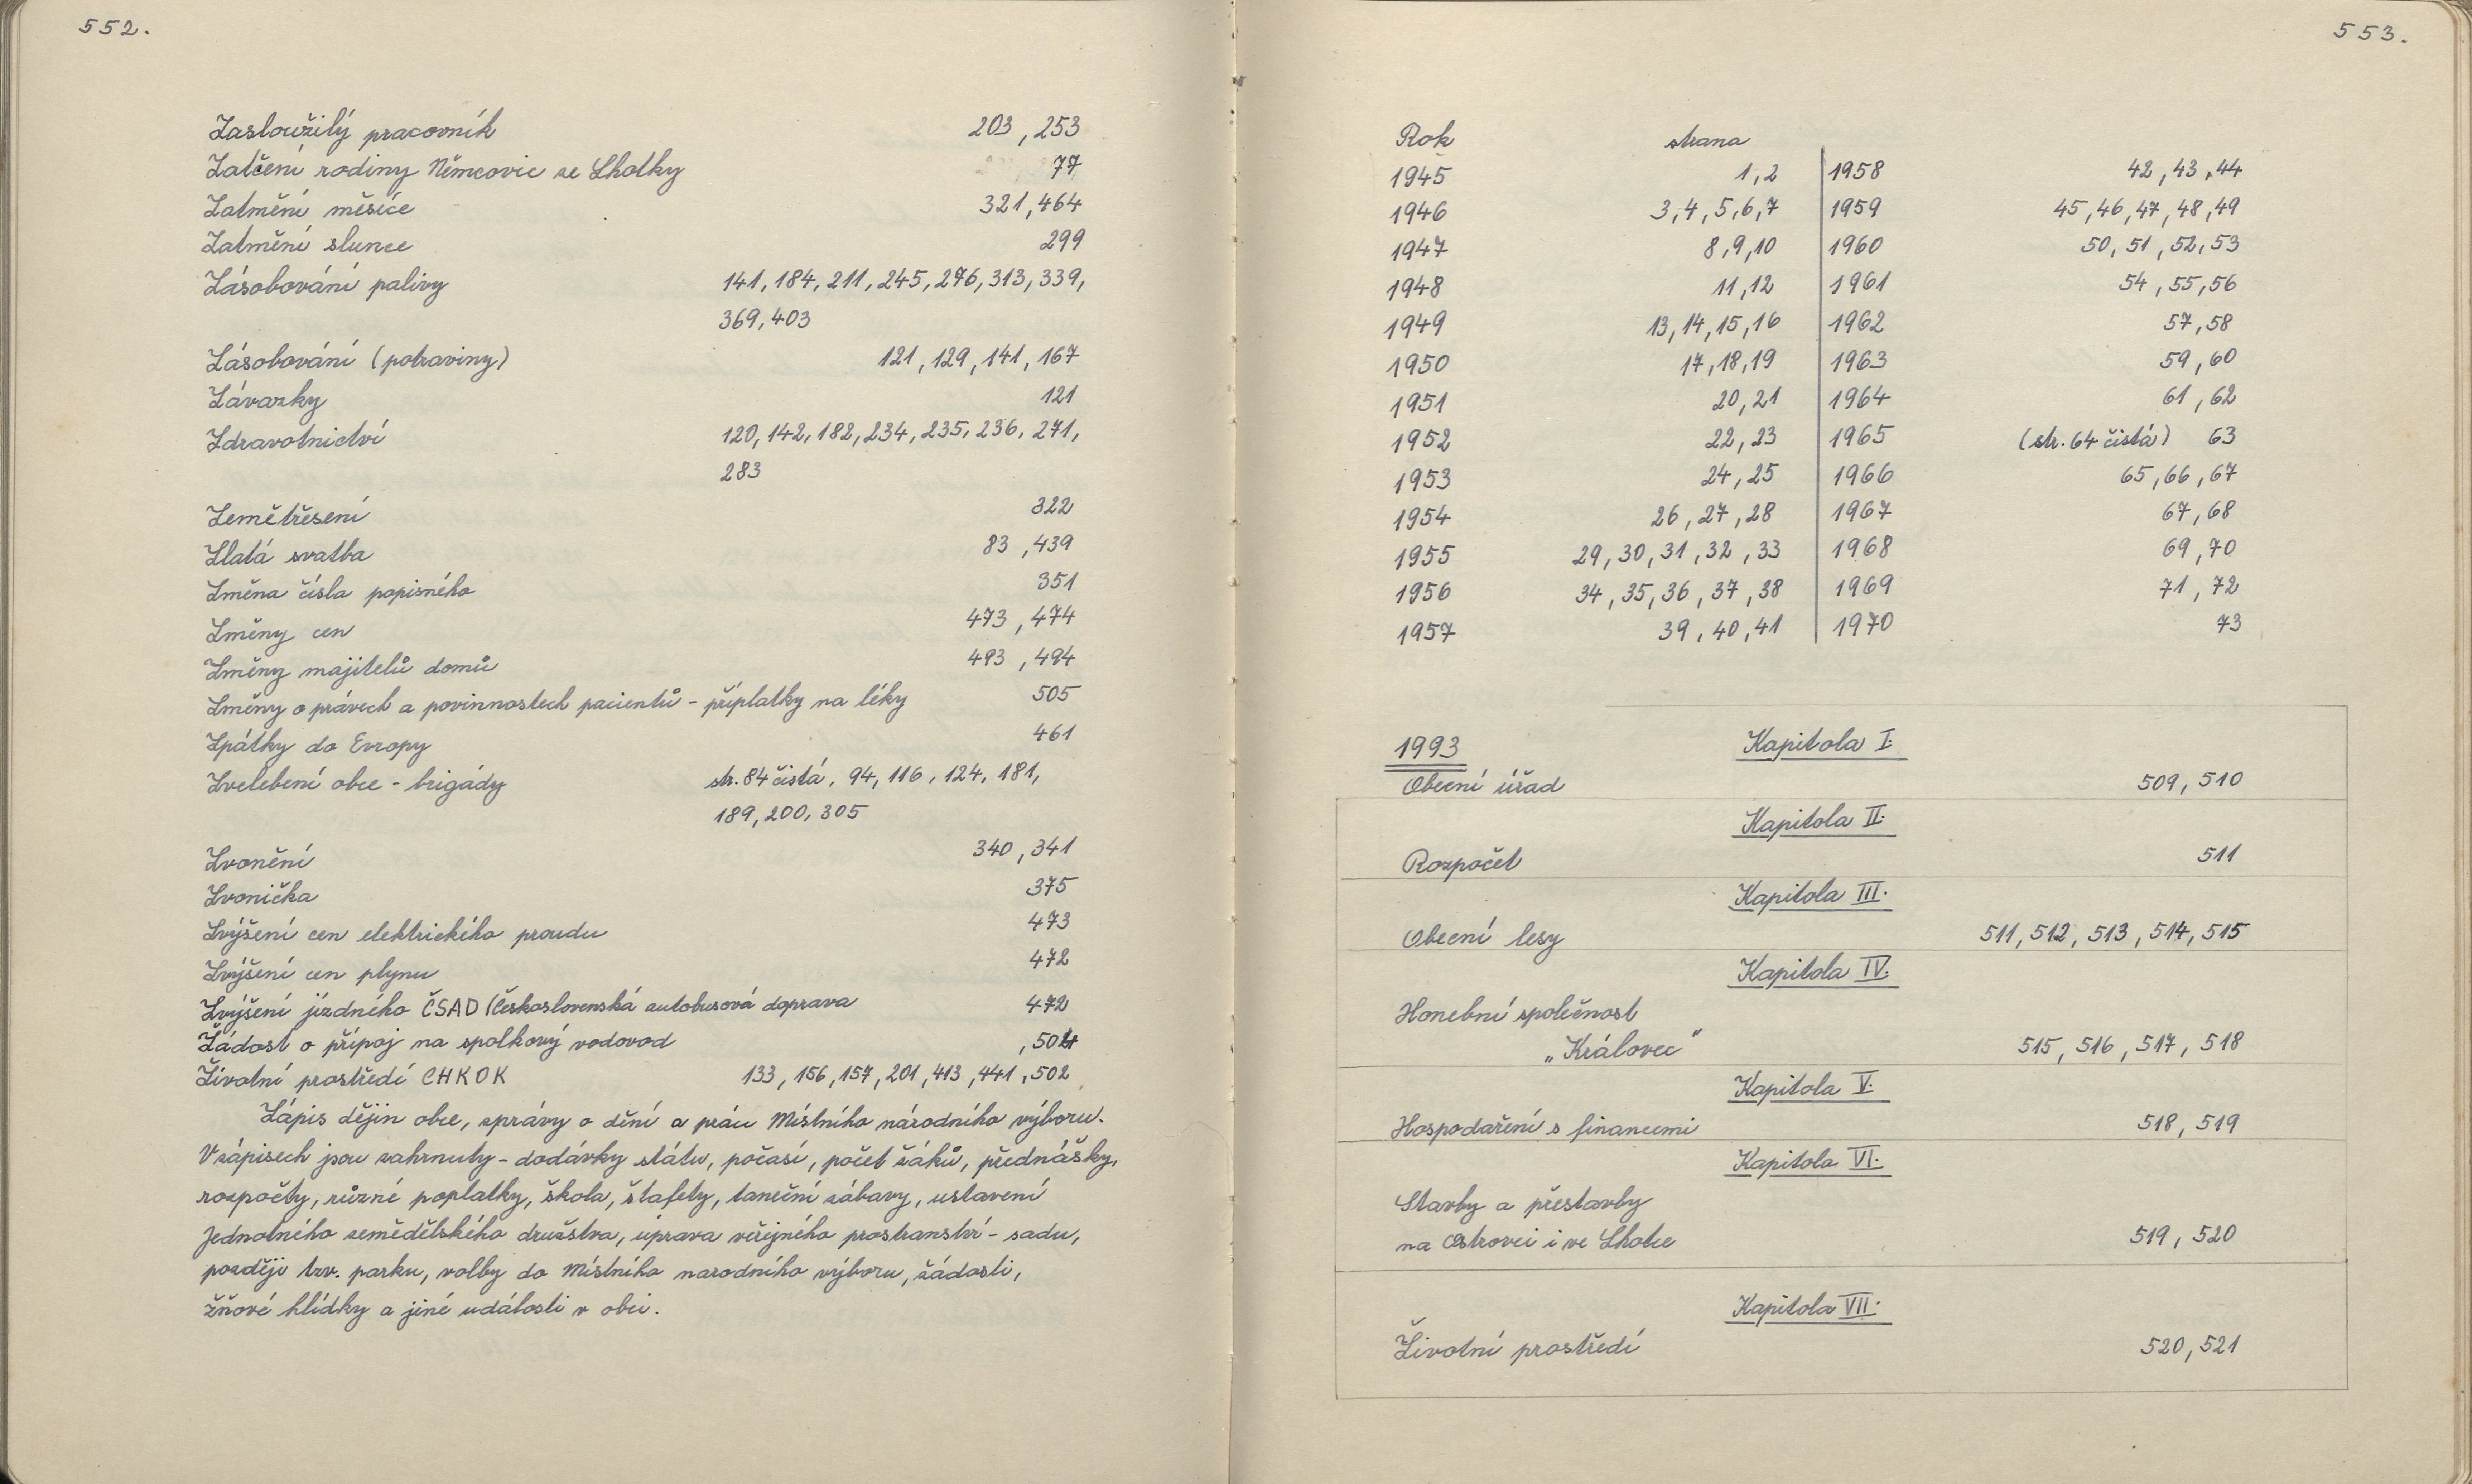 552.
Zasloužilý pracovník 203, 253
Zatčení rodiny Němcovic ze Lhotky 77
Zatmění měsíce 321, 464
Zatmění slunce 299
Zásobování palivy 141, 184, 211, 245, 276, 313, 339,
369, 403
Zásobování (potraviny) 121, 129, 141, 167
Závazky 121
Zdravotnictví 120, 142, 182, 234, 235, 236, 271,
283
Zemětřesení 322
Zlatá svatba 83, 439
Změna čísla popisného 351
Změny cen 473, 474
Změny majitelů domů 493, 494
Změny o právech a povinnostech pacientů - příplatky na léky 505
Zpátky do Evropy 461
Zvelebení obce - brigády str. 84 čistá, 94, 116, 124, 181,
189, 200, 305
Zvonění 340, 341
Zvonička 375
Zvýšení cen elektrického proudu 473
Zvýšení cen plynu 472
Zvýšení jízdného ČSAD (Československá autobusová doprava 472
Žádost o přípoj na spolkový vodovod , 504
Životní prostředí CHKOK 133, 156, 157, 201, 413, 441, 502
Zápis dějin obce, zprávy o dění a práci Místního národního výboru.
V zápisech jsou zahrnuty - dodávky státu, počasí, počet žáků, přednášky,
rozpočty, různé poplatky, škola, štafety, taneční zábavy, ustavení
Jednotného zemědělského družstva, úprava veřejného prostranství - sadu,
později tzv. parku, volby do Místního narodního výboru, žádosti,
žňové hlídky a jiné události v obci.
553.
Rok strana
1945 1, 2 1958 42, 43, 44
1946 3, 4, 5, 6, 7 1959 45, 46, 47, 48, 49
1947 8, 9, 10 1960 50, 51, 52, 53
1948 11, 12 1961 54, 55, 56
1949 13, 14, 15, 16 1962 57, 58
1950 17, 18, 19 1963 59, 60
1951 20, 21 1964 61, 62
1952 22, 23 1965 (str. 64 čistá) 63
1953 24, 25 1966 65, 66, 67
1954 26, 27, 28 1967 67, 68
1955 29, 30, 31, 32, 33 1968 69, 70
1956 34, 35, 36, 37, 38 1969 71, 72
1957 39, 40, 41 1970 73
1993 Kapitola I.
Obecní úřad 509, 510
Kapitola II.
Rozpočet 511
Kapitola III.
Obecní lesy 511, 512, 513, 514, 515
Kapitola IV.
Honební společnost
„Královec" 515, 516, 517, 518
Kapitola V.
Hospodaření s financemi 518, 519
Kapitola VI.
Stavby a přestavby
na Ostrovci i ve Lhotce 519, 520
Kapitola VII.
Životní prostředí 520, 521